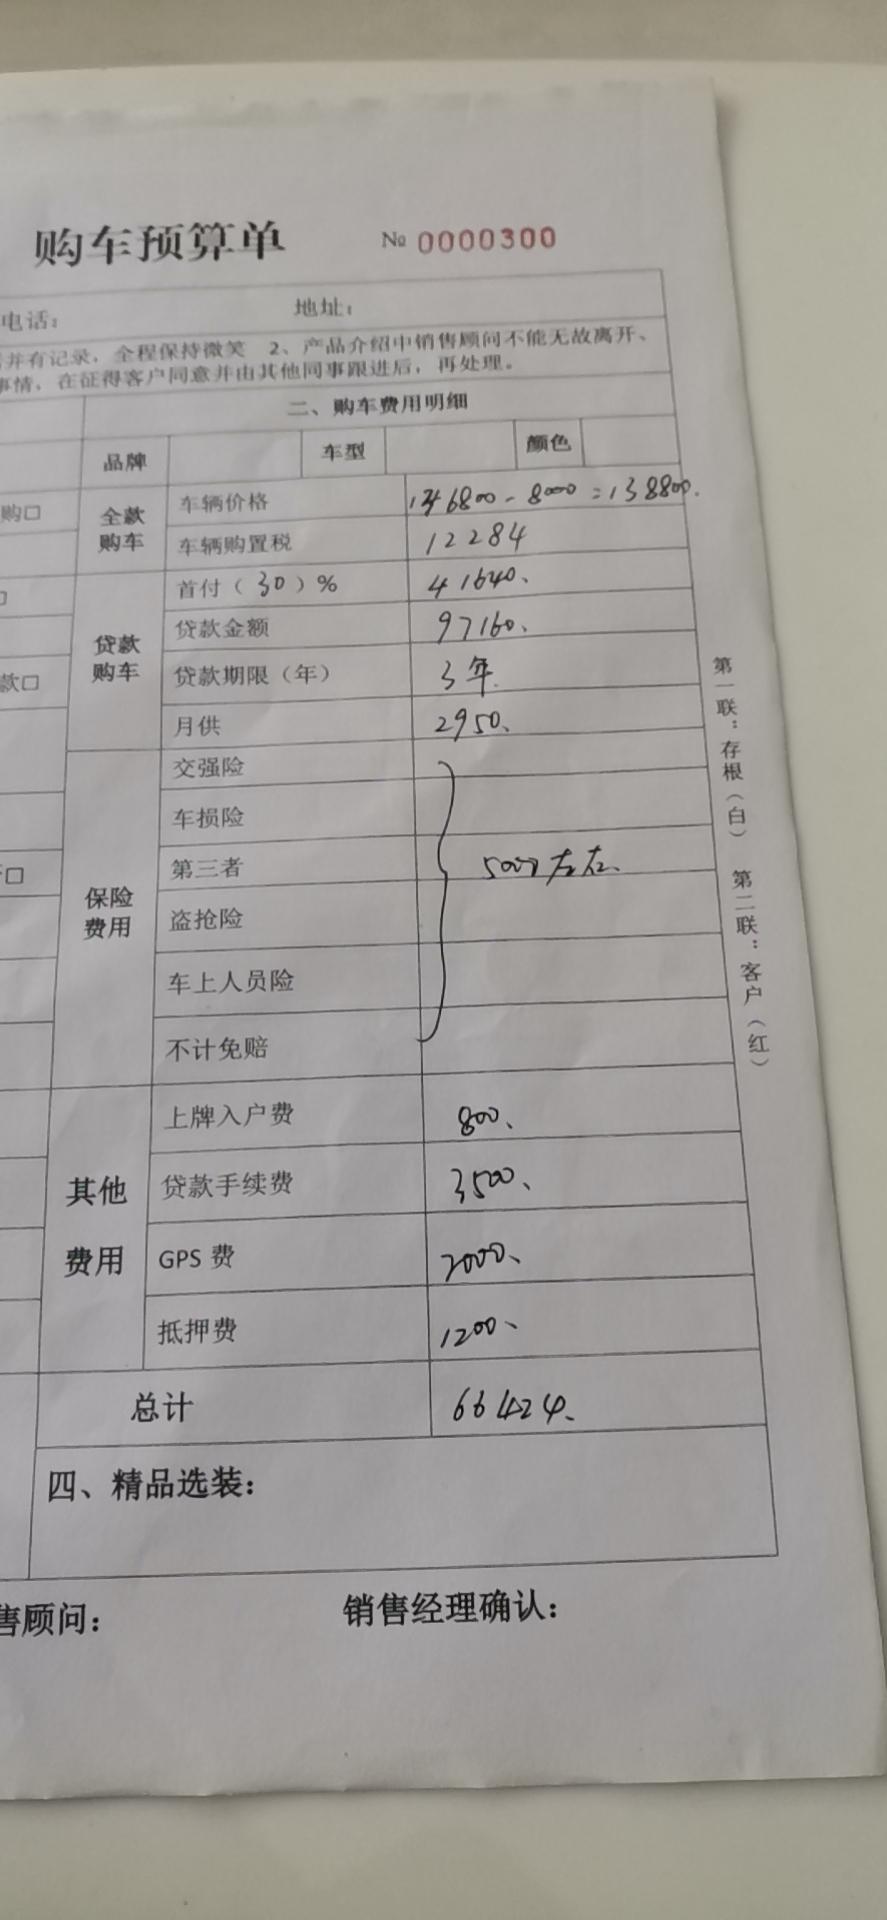 购车预算单 № 0000300
电话： 地址：
并有记录，全程保持微笑 2、产品介绍中销售顾问不能无故离开、
事情，在征得客户同意并由其他同事跟进后，再处理。
二、购车费用明细
品牌 车型 颜色
购□ 全款购车 车辆价格 146800-8000=138800.
车辆购置税 12284
□ 贷款购车 首付（30）% 41640、
贷款金额 97160、
款□ 贷款期限（年） 3年
月供 2950、
保险费用 交强险
车损险
□ 第三者 5000左右、
盗抢险
车上人员险
不计免赔
其他费用 上牌入户费 800、
贷款手续费 3500、
GPS 费 2000、
抵押费 1200、
总计 66424、
四、精品选装：
售顾问： 销售经理确认：
第一联：存根（白） 第二联：客户（红）